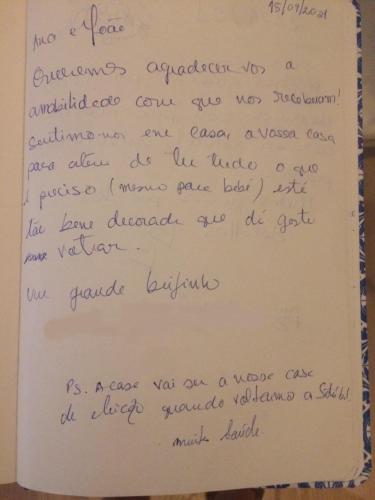 15/09/2021
Ana e João
Queremos agradecer vos a
amabilidade com que nos receberam!
sentimo-nos em casa, a vossa casa
para além de ter tudo o que
é preciso (mesmo para bebé) está
tão bem decorada que dá gosto
voltar.
Um grande beijinho
Ps. A casa vai ser a nossa casa
de eleição quando voltarmos a Setúbal
muita Saúde